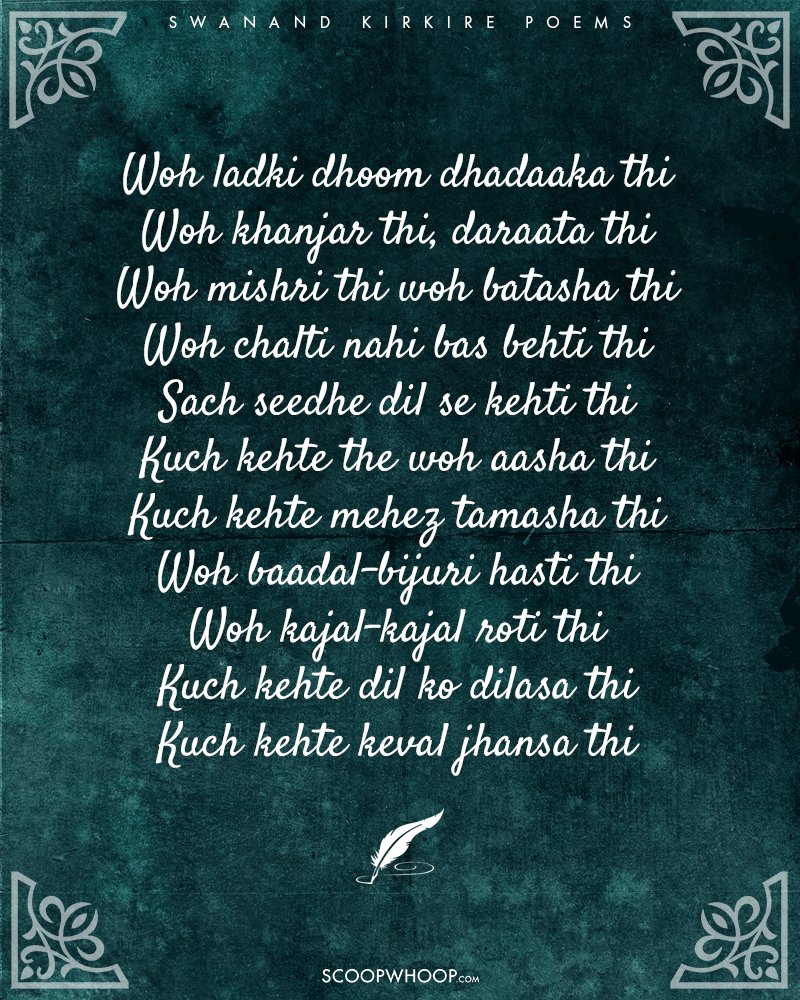 SWANAND KIRKIRE POEMS
Woh ladki dhoom dhadaaka thi
Woh khanjar thi, daraata thi
Woh mishri thi woh batasha thi
Woh chalti nahi bas behti thi
Sach seedhe dil se kehti thi
Kuch kehte the woh aasha thi
Kuch kehte mehez tamasha thi
Woh baadal-bijuri hasti thi
Woh kajal-kajal roti thi
Kuch kehte dil ko dilasa thi
Kuch kehte keval jhansa thi
SCOOPWHOOP.COM